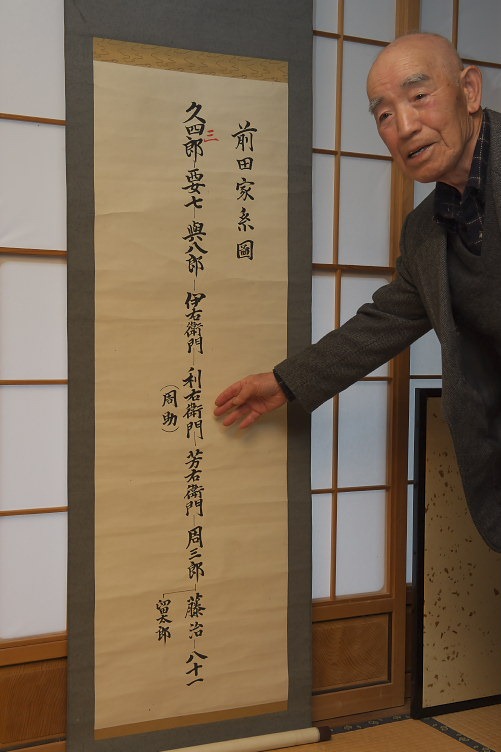 前田家系圖
久四郎 要七 與八郎 伊右衛門 利右衛門 芳右衛門 周三郎 藤治 八十一
三
(周助)
留太郎